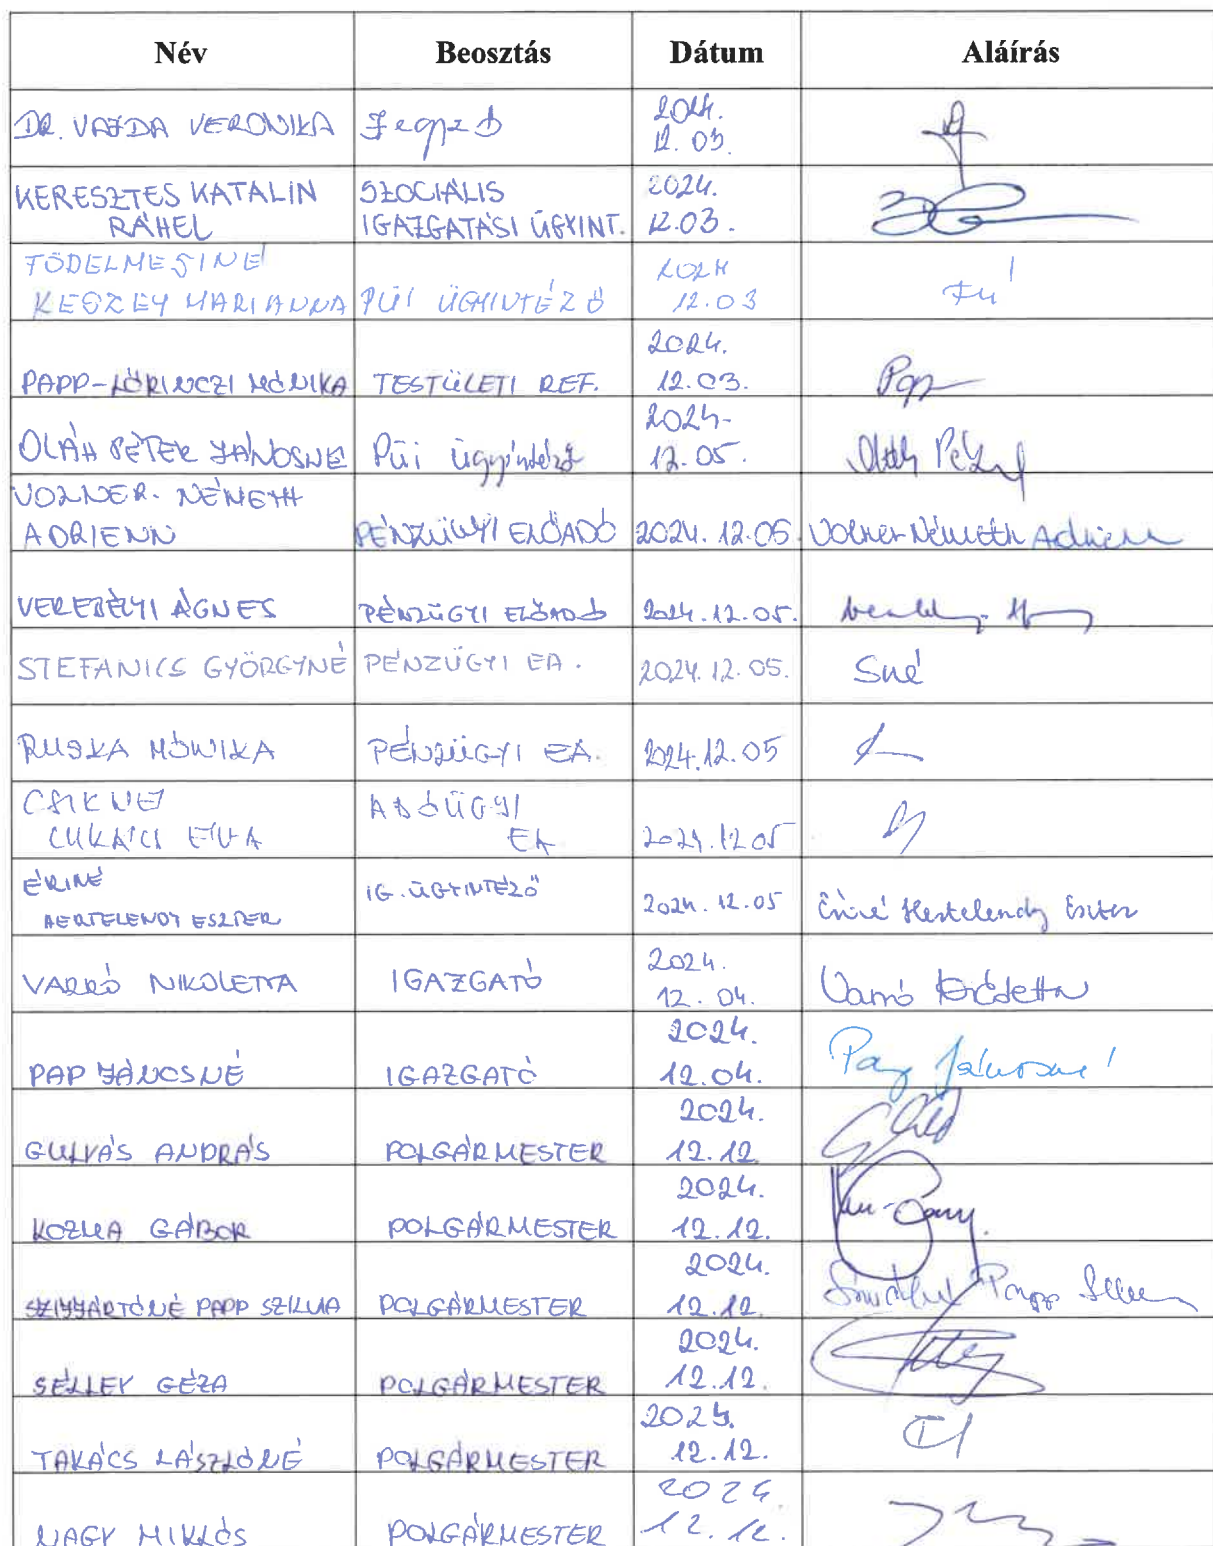 Név Beosztás Dátum Aláírás
DR. VAJDA VERONIKA Jegyző 2024.
12.03.
KERESZTES KATALIN SZOCIÁLIS 2024.
RÁHEL IGAZGATÁSI ÜGYINT. 12.03.
TÖDELMESINÉ 2024
KESZEY MARIANNA PÜI ÜGYINTÉZŐ 12.03
2024.
PAPP-LŐRINCZI MÓNIKA TESTÜLETI REF. 12.03. Papp
2024.
OLÁH PÉTER JÁNOSNÉ Püi ügyintéző 12.05. Oláh Péter
VOLNER-NÉMETH
ADRIENN PÉNZÜGYI ELŐADÓ 2024.12.05. Volner-Németh Adrienn
VEREBÉLYI ÁGNES PÉNZÜGYI ELŐADÓ 2024.12.05.
STEFANICS GYÖRGYNÉ PÉNZÜGYI EA. 2024.12.05. Sné
RUSKA MÓNIKA PÉNZÜGYI EA. 2024.12.05
CSIKNÉ ADÓÜGYI
LUKÁCS ÉVA EA 2024.12.05
ÉRINÉ IG. ÜGYINTÉZŐ
HERTELENDY ESZTER 2024.12.05 Ériné Hertelendy Eszter
VARRÓ NIKOLETTA IGAZGATÓ 2024.
12.04. Varró
2024.
PAP JÁNOSNÉ IGAZGATÓ 12.04. Pap Jánosné
2024.
GULYÁS ANDRÁS POLGÁRMESTER 12.12
2024.
KOZMA GÁBOR POLGÁRMESTER 12.12.
2024.
SZIJJÁRTÓNÉ PAPP SZILVIA POLGÁRMESTER 12.12. Papp
2024.
SELLEY GÉZA POLGÁRMESTER 12.12.
2024.
TAKÁCS LÁSZLÓNÉ POLGÁRMESTER 12.12.
2024.
NAGY MIKLÓS POLGÁRMESTER 12.12.